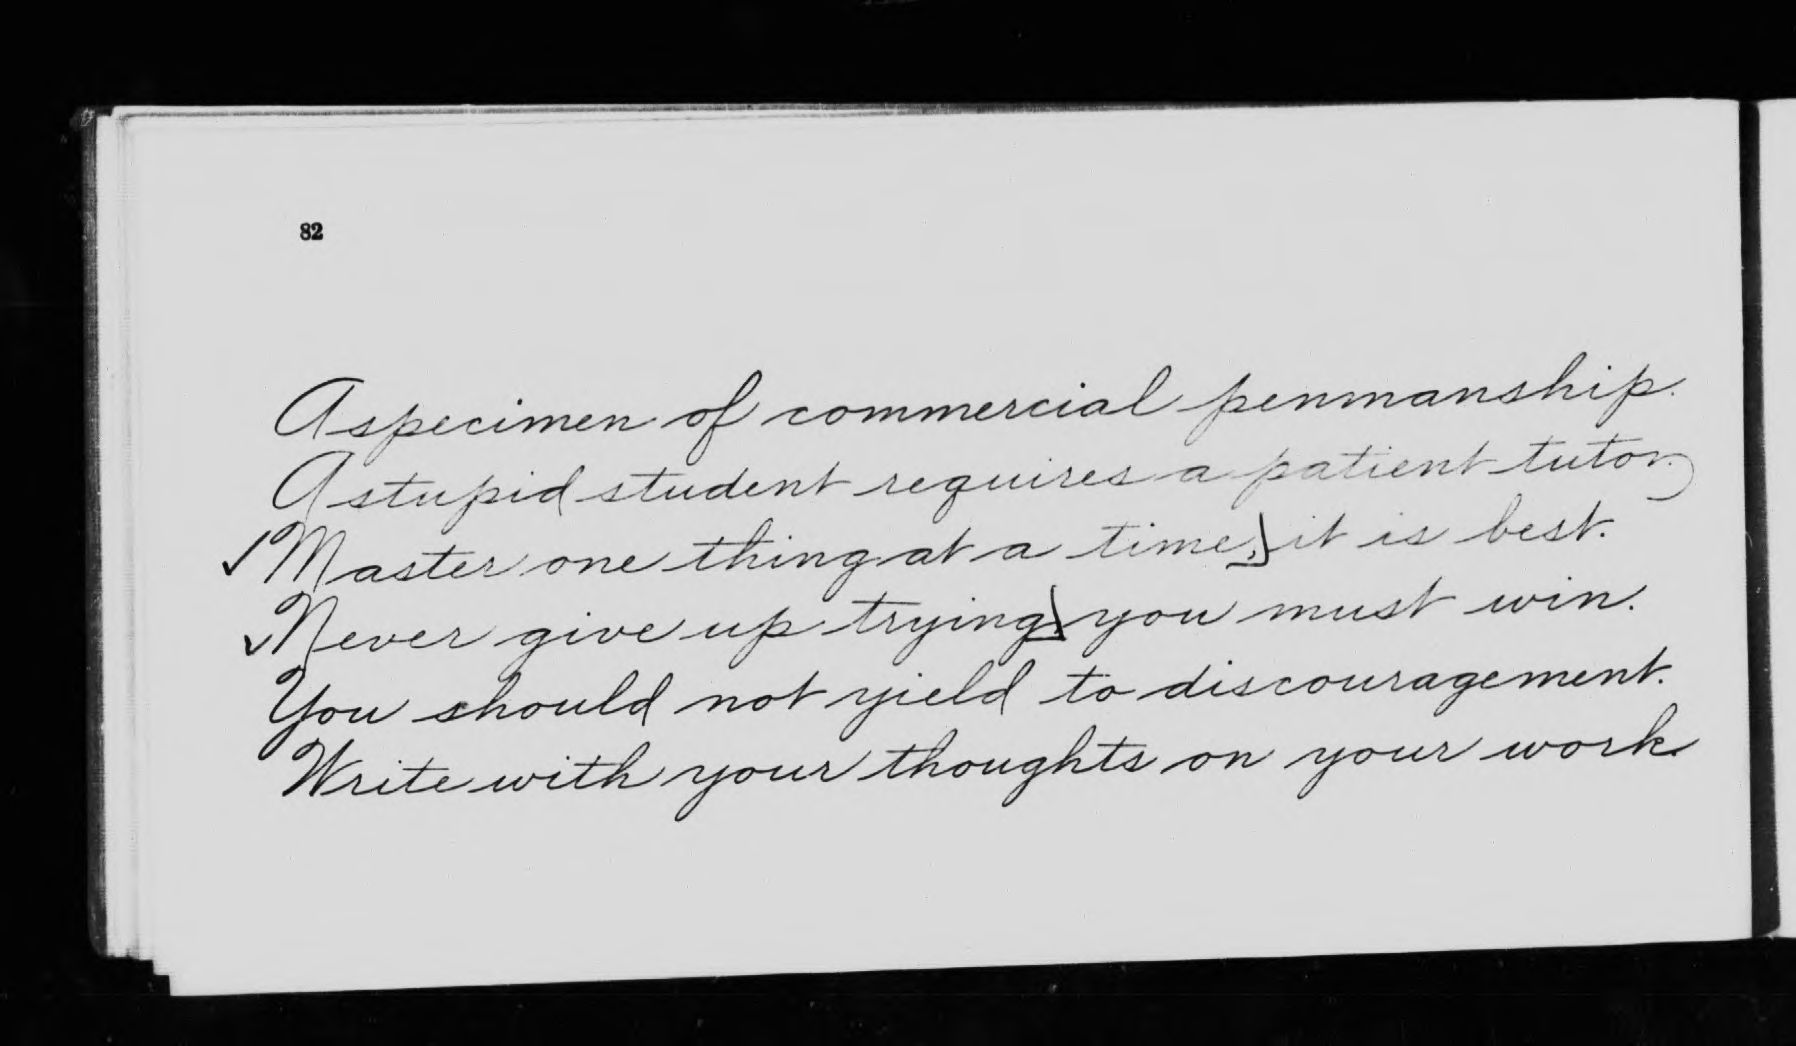 82
A specimen of commercial penmanship.
A stupid student requires a patient tutor.
✓ Master one thing at a time, it is best.
✓ Never give up trying, you must win.
You should not yield to discouragement.
Write with your thoughts on your work.